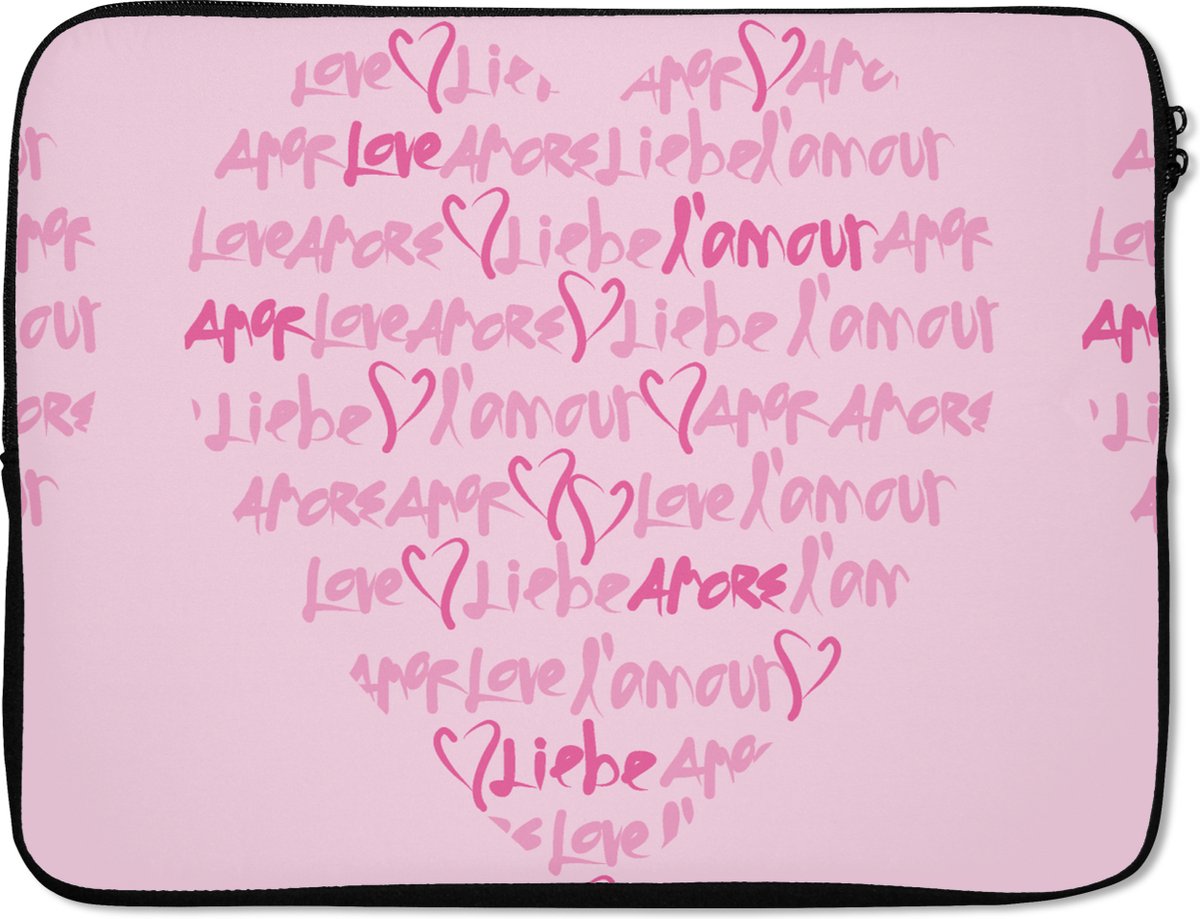 Love Lie AMOR AMO
AMOR Love AMORE Liebe l'amour
Love AMORE Liebe l'amour AMOR Lo
AMOR Love AMORE Liebe l'amour AM
ORE Liebe l'amour AMOR AMORE Li
AMORE AMOR Love l'amour
Love Liebe AMORE l'am
AMOR Love l'amour
Liebe AMO
Love l'